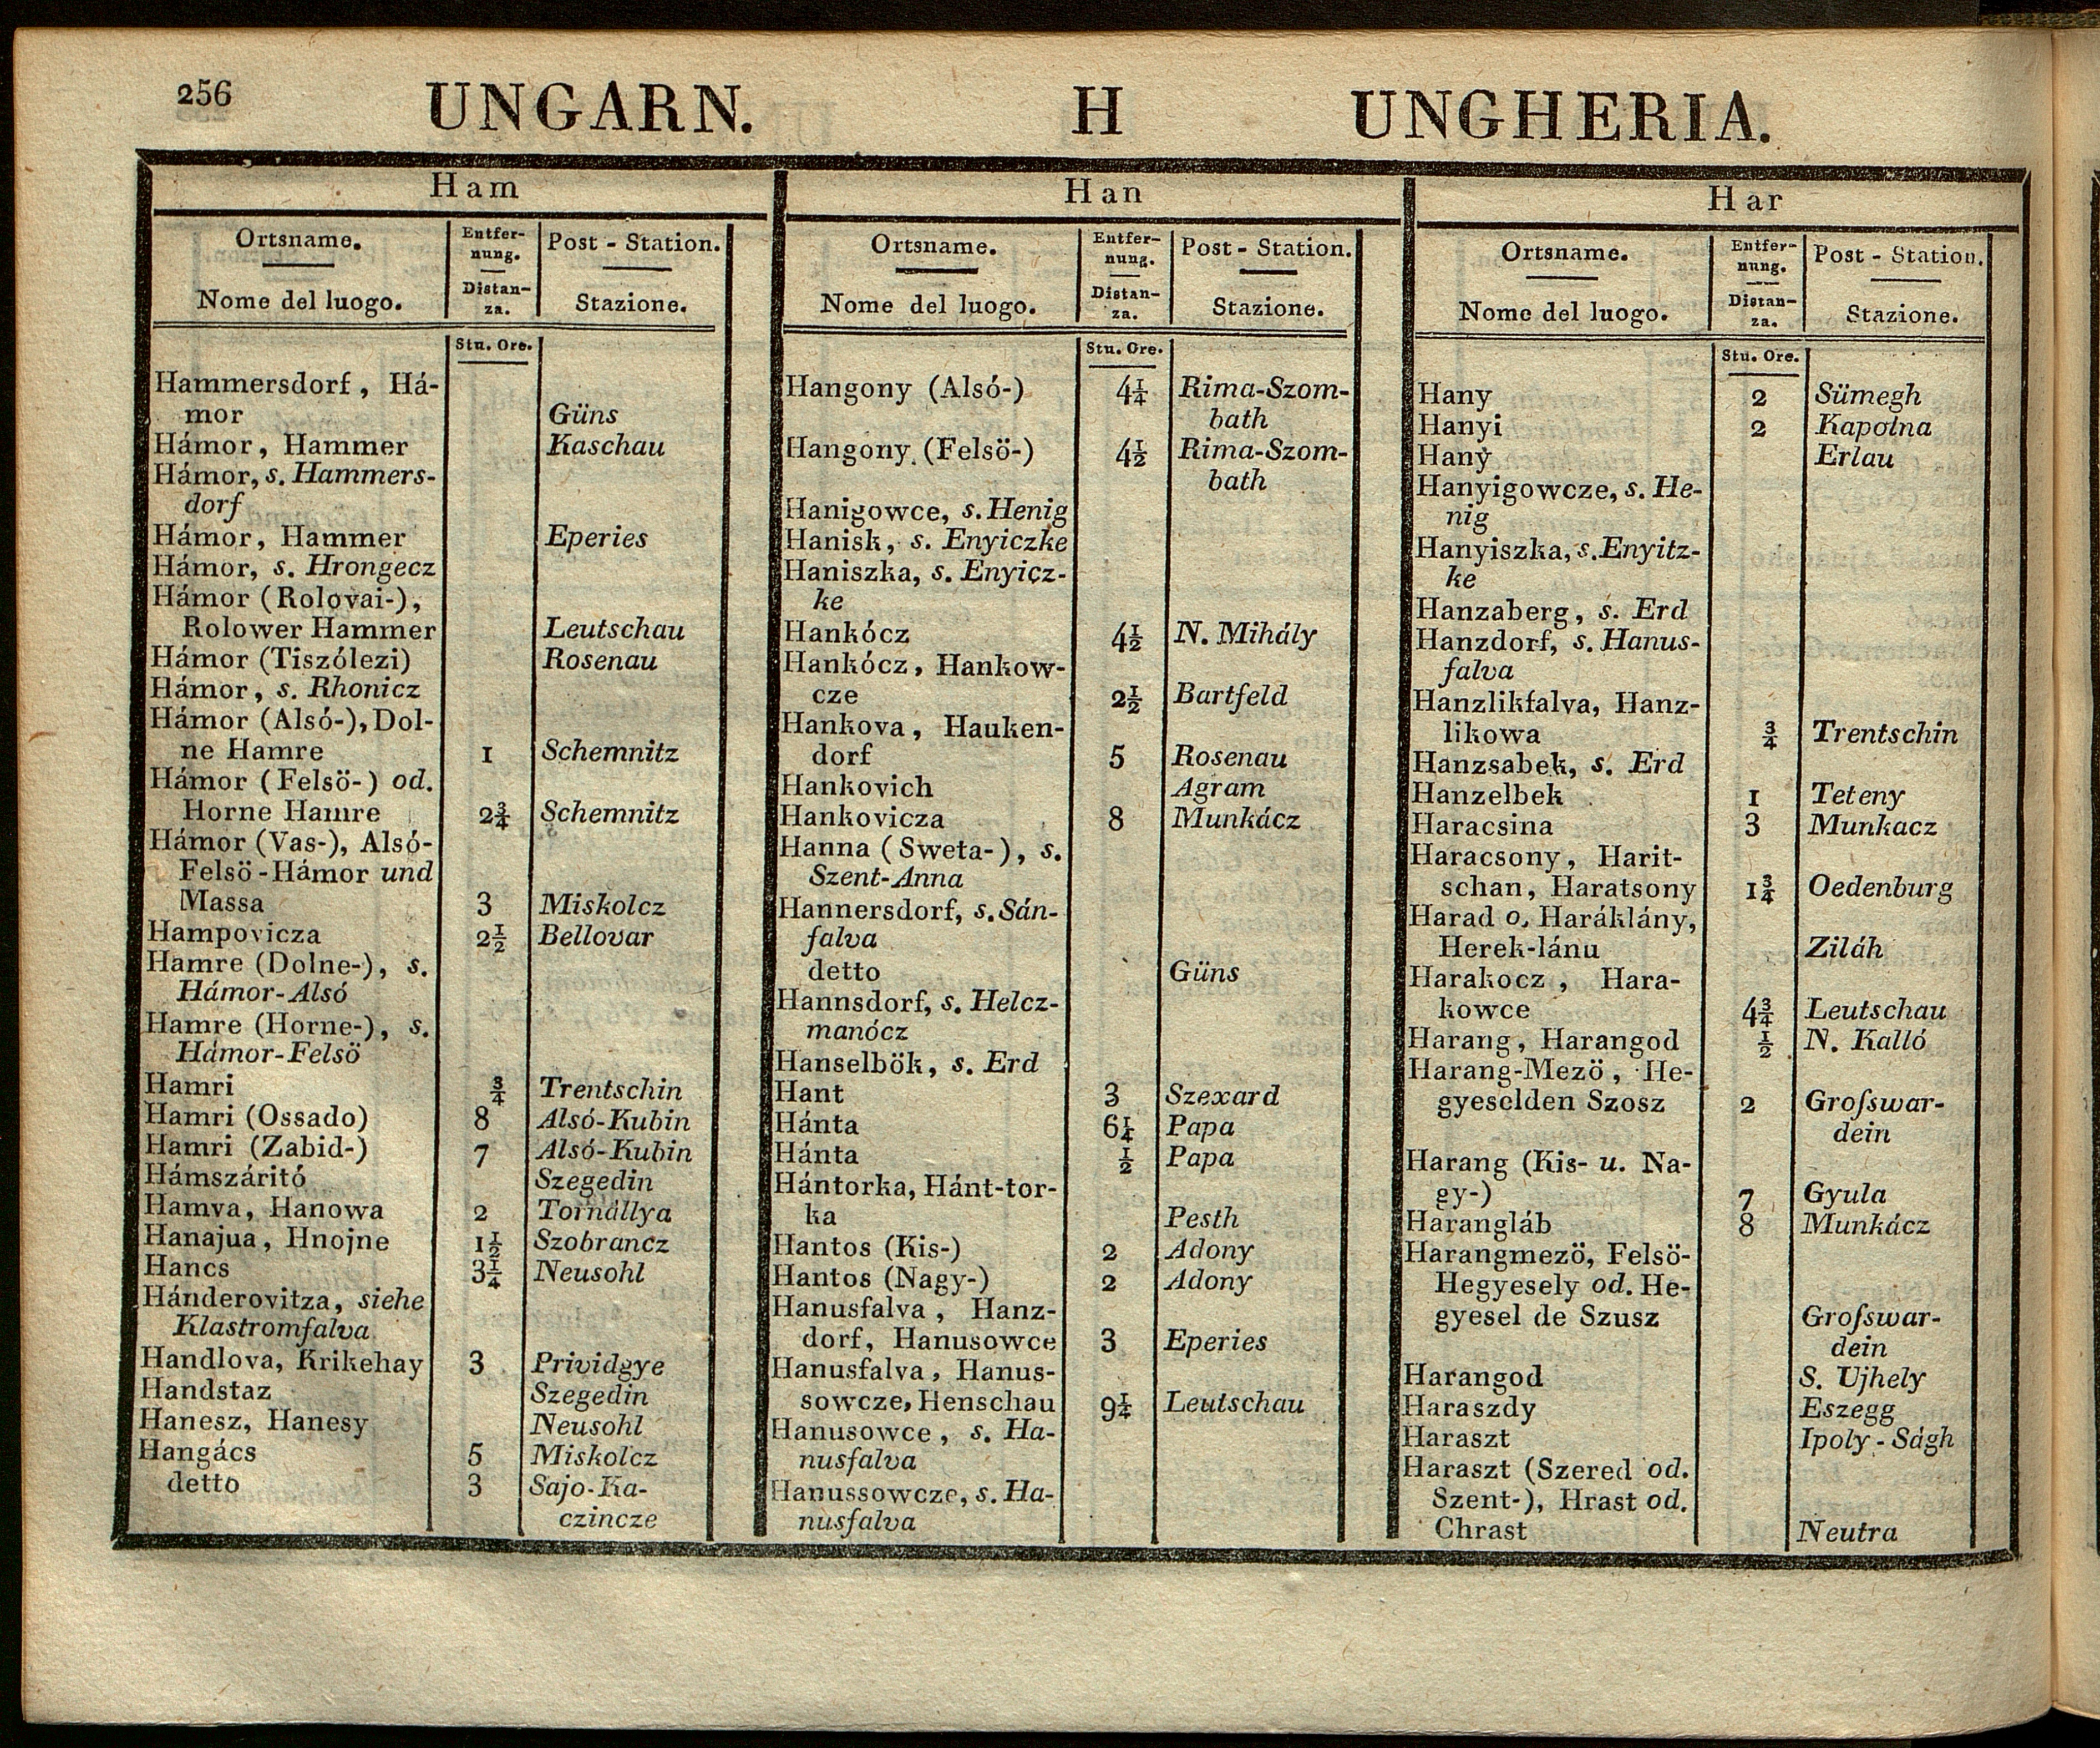 256 UNGARN. H UNGHERIA.
Ham
Ortsname. Entfer- Post - Station.
nung.
Nome del luogo. Distan- Stazione.
za.
Stu. Ore.
Hammersdorf, Há-
mor Güns
Hámor, Hammer Kaschau
Hámor, s. Hammers-
dorf
Hámor, Hammer Eperies
Hámor, s. Hrongecz
Hámor (Rolovai-),
Rolower Hammer Leutschau
Hámor (Tiszólezi) Rosenau
Hámor, s. Rhonicz
Hámor (Alsó-), Dol-
ne Hamre 1 Schemnitz
Hámor (Felsö-) od.
Horne Hamre 2¾ Schemnitz
Hámor (Vas-), Alsó-
Felsö-Hámor und
Massa 3 Miskolcz
Hampovicza 2½ Bellovar
Hamre (Dolne-), s.
Hámor-Alsó
Hamre (Horne-), s.
Hámor-Felsö
Hamri ¾ Trentschin
Hamri (Ossado) 8 Alsó-Kubin
Hamri (Zabid-) 7 Alsó-Kubin
Hámszáritó Szegedin
Hamva, Hanowa 2 Tornállya
Hanajua, Hnojne 1½ Szobrancz
Hancs 3¼ Neusohl
Hánderovitza, siehe
Klastromfalva
Handlova, Krikehay 3 Prividgye
Handstaz Szegedin
Hanesz, Hanesy Neusohl
Hangács 5 Miskolcz
detto 3 Sajo-Ka-
czincze
Han
Ortsname. Entfer- Post - Station.
nung.
Nome del luogo. Distan- Stazione.
za.
Stu. Ore.
Hangony (Alsó-) 4¼ Rima-Szom-
bath
Hangony (Felsö-) 4½ Rima-Szom-
bath
Hanigowce, s. Henig
Hanisk, s. Enyiczke
Haniszka, s. Enyicz-
ke
Hankócz 4½ N. Mihály
Hankócz, Hankow-
cze 2½ Bartfeld
Hankova, Hauken-
dorf 5 Rosenau
Hankovich Agram
Hankovicza 8 Munkácz
Hanna (Sweta-), s.
Szent-Anna
Hannersdorf, s. Sán-
falva
detto Güns
Hannsdorf, s. Helcz-
manócz
Hanselbök, s. Erd
Hant 3 Szexard
Hánta 6¼ Papa
Hánta ½ Papa
Hántorka, Hánt-tor-
ka Pesth
Hantos (Kis-) 2 Adony
Hantos (Nagy-) 2 Adony
Hanusfalva, Hanz-
dorf, Hanusowce 3 Eperies
Hanusfalva, Hanus-
sowcze, Henschau 9¼ Leutschau
Hanusowce, s. Ha-
nusfalva
Hanussowcze, s. Ha-
nusfalva
Har
Ortsname. Entfer- Post - Station.
nung.
Nome del luogo. Distan- Stazione.
za.
Stu. Ore.
Hany 2 Sümegh
Hanyi 2 Kapolna
Hanẏ Erlau
Hanyigowcze, s. He-
nig
Hanyiszka, s. Enyitz-
ke
Hanzaberg, s. Erd
Hanzdorf, s. Hanus-
falva
Hanzlikfalva, Hanz-
likowa ¾ Trentschin
Hanzsabek, s. Erd
Hanzelbek 1 Teteny
Haracsina 3 Munkacz
Haracsony, Harit-
schan, Haratsony 1¾ Oedenburg
Harad o. Haráklány,
Herek-lánu Ziláh
Harakocz, Hara-
kowce 4¾ Leutschau
Harang, Harangod ½ N. Kalló
Harang-Mezö, He-
gyeselden Szosz 2 Groſswar-
dein
Harang (Kis- u. Na-
gy-) 7 Gyula
Harangláb 8 Munkácz
Harangmezö, Felsö-
Hegyesely od. He-
gyesel de Szusz Groſswar-
dein
Harangod S. Ujhely
Haraszdy Eszegg
Haraszt Ipoly-Ságh
Haraszt (Szered od.
Szent-), Hrast od.
Chrast Neutra